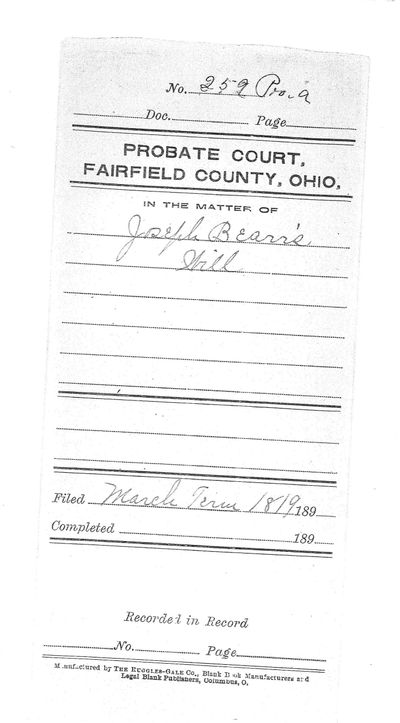 No. 259 Pro. a
Doc. Page
PROBATE COURT,
FAIRFIELD COUNTY, OHIO,
IN THE MATTER OF
Joseph Bearr's
Will
Filed March Term 1819 189
Completed 189
Recorded in Record
No. Page
Manufactured by THE RUGGLES-GALE CO., Blank Book Manufacturers and
Legal Blank Publishers, Columbus, O.